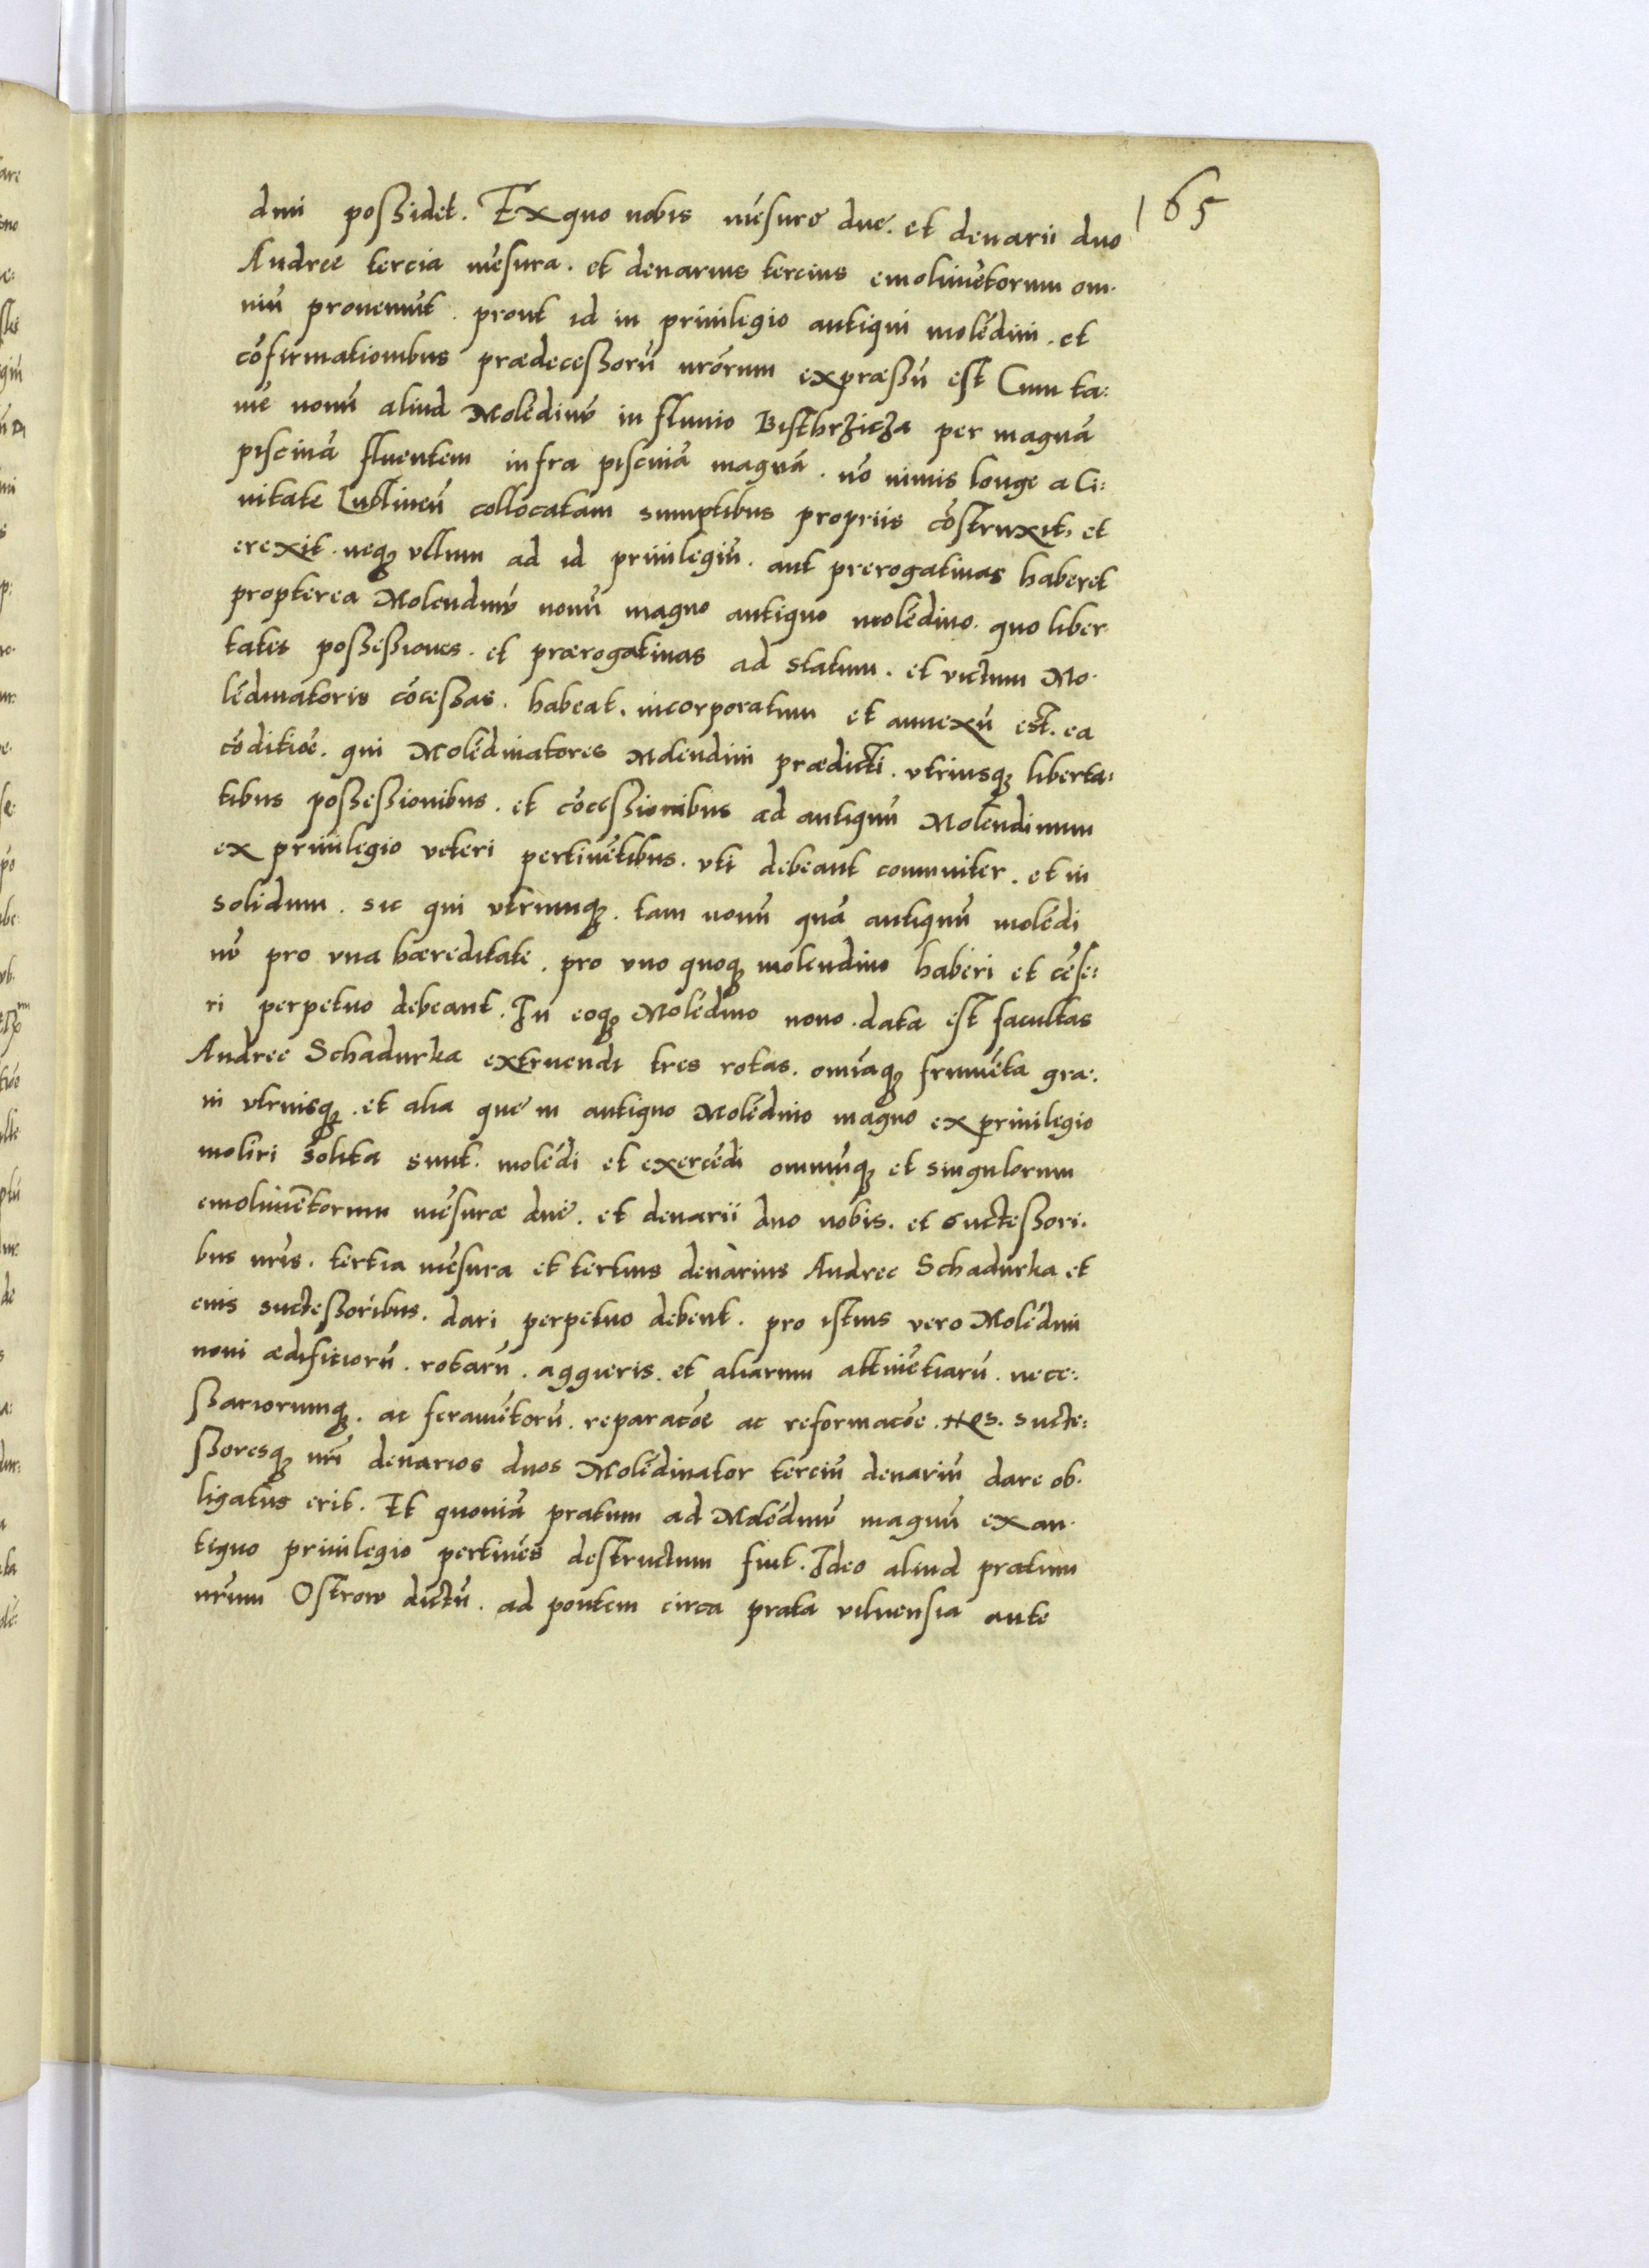 165
dnii poßidet. Ex quo nobis mēsure due. et denarii duo
Andree tercia mēsura. et denarius tercius emolimētorum om-
niū proueniūt. prout id in priuilegio antiqui molēdini. et
cōfirmationibus prædeceßorū nrōrum expræßū est Cum ta:
mē nouū aliud Molēdinū in fluuio Bisthrzicza per magnā
piscinā fluentem infra piscinā magnā. nō nimis longe a Ci:
uitate Lublineñ collocatam sumptibus propriis cōstruxit, et
erexit. neq₃ vllum ad id priuilegiū. aut prerogatiuas haberet
propterea Molendinū nouū magno antiquo molēdino. quo liber
tates poßeßiones. et prærogatiuas ad statum. et victum Mo-
lēdinatoris cōceßas. habeat. incorporatum et annexū est. ea
cōditiōe. qui Molēdinatores Molendini prædicti. vtriusq₃ liberta:
tibus poßeßionibus. et cōceßionibus ad antiquū Molendinum
ex priuilegio veteri pertinētibus. vti debeant comuniter. et in
solidum. sic qui vtrumq₃. tam nouū quā antiquū molēdi
nū pro vna hæreditate. pro vno quoq₃ molendino haberi et cēse:
ri perpetuo debeant. In eoq₃ Molēdino nouo. data est facultas
Andree Schadurka extruendi tres rotas. omiāq₃ frumēta gra-
ni vtriusq₃. et alia que in antiquo Molēdino magno ex priuilegio
moliri solita sunt. molēdi et exercēdi omniūq₃ et singulorum
emolimētorum mēsuræ due. et denarii duo nobis. et Succeßori-
bus nrīs. tertia mēsura et tertius denarius Andree Schadurka et
euis succeßoribus. dari perpetuo debent. pro istius vero Molēdini
noui ædificiorū. rotarū. aggeris. et aliarum attinētiarū. nece:
ßariorumq₃. ac feramētorū. reparacōe ac reformacōe. Nos. succe:
ßoresq₃ nrī denarios duos Molēdinator terciū denariū dare ob-
ligatus erit. Et quoniā pratum ad Molēdinū magnū ex an-
tiquo priuilegio pertinēs destructum fiut. Ideo aliud pratum
nrūm Ostrow dictū. ad pontem circa prata viluensia ante